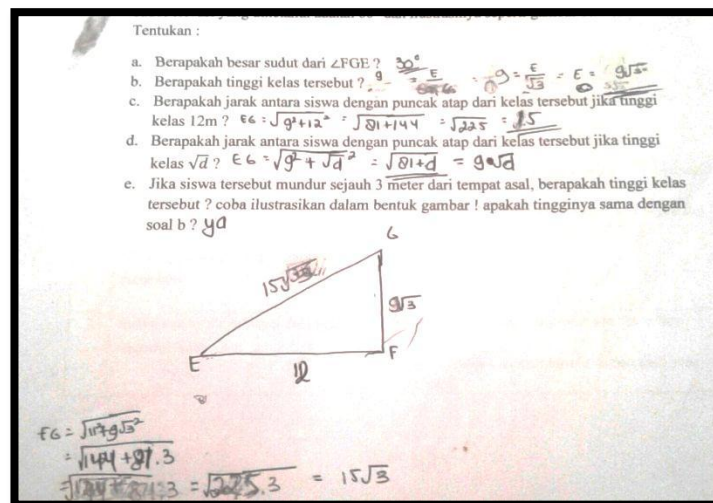 Tentukan :
a. Berapakah besar sudut dari ∠FGE ? 30°
b. Berapakah tinggi kelas tersebut ? 9 = E/√3 = E = 9√3
c. Berapakah jarak antara siswa dengan puncak atap dari kelas tersebut jika tinggi
kelas 12m ? EG = √9²+12² = √81+144 = √225 = 15
d. Berapakah jarak antara siswa dengan puncak atap dari kelas tersebut jika tinggi
kelas √d ? EG = √9²+√d² = √81+d = 9√d
e. Jika siswa tersebut mundur sejauh 3 meter dari tempat asal, berapakah tinggi kelas
tersebut ? coba ilustrasikan dalam bentuk gambar ! apakah tingginya sama dengan
soal b ? ya
G
15√3
9√3
E
12
F
EG = √12²+9√3²
= √144+81.3
= √225.3 = 15√3